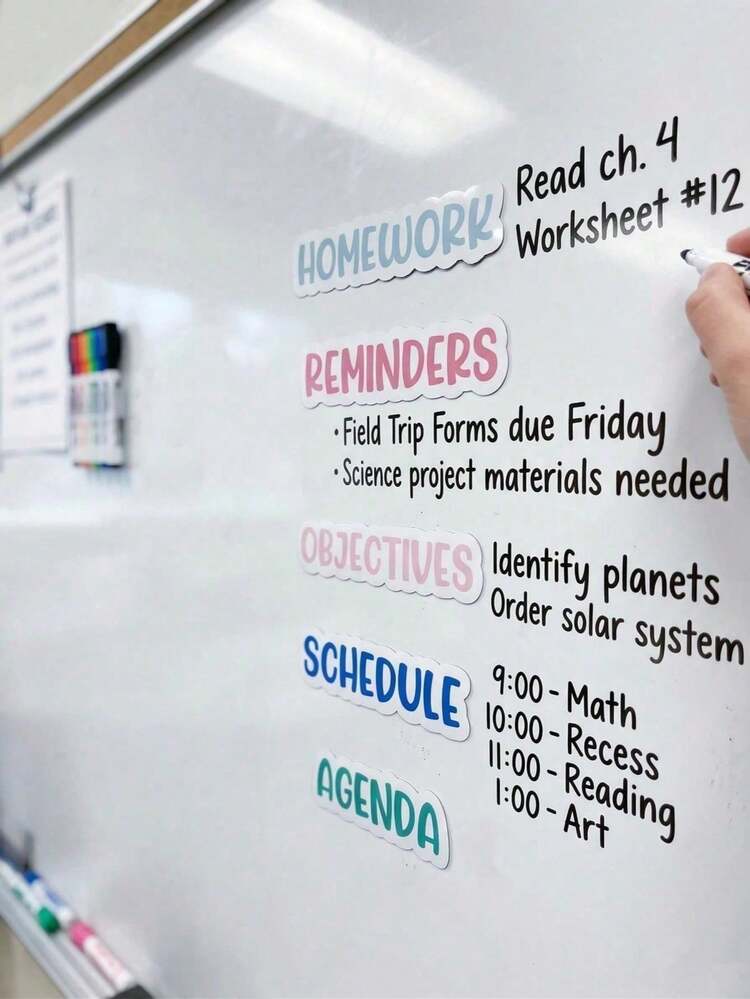 HOMEWORK
Read ch. 4
Worksheet #12
REMINDERS
• Field Trip Forms due Friday
• Science project materials needed
OBJECTIVES
Identify planets
Order solar system
SCHEDULE
9:00 - Math
10:00 - Recess
11:00 - Reading
1:00 - Art
AGENDA